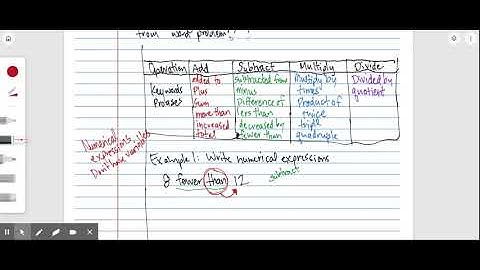 from word problems?
Operation Add Subtract Multiply Divide
Keywords added to subtracted from Multiply by Divided by
Phrases Plus minus times quotient
Sum Difference of Product of
more than less than twice
increased decreased by triple
total fewer than quadruple
Numerical
expressions
Don't have variables
Example 1: Write numerical expressions
8 fewer than 12 subtract